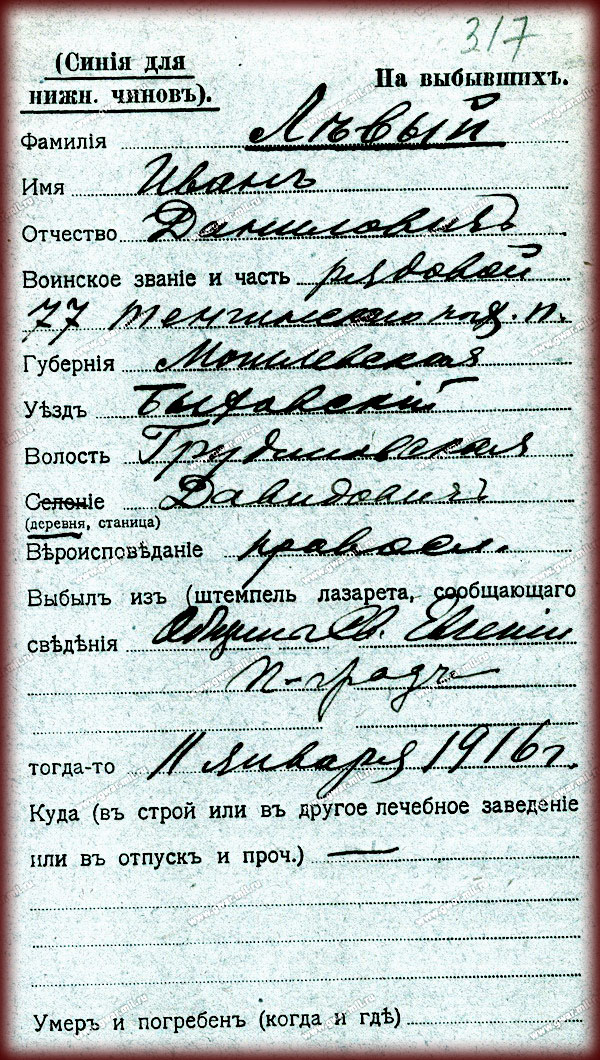 317
(Синія для
нижн. чиновъ).
На выбывшихъ.
Фамилія Лѣвый
Имя Иванъ
Отчество Даниловичъ
Воинское званіе и часть рядовой
77 Тенгинского пѣх. п.
Губернія Могилевская
Уѣздъ Быховскій
Волость Грудиновская
Селеніе Давидовичъ
(деревня, станица)
Вѣроисповѣданіе правосл.
Выбылъ изъ (штемпель лазарета, сообщающаго
свѣдѣнія Общины Св. Евгеніи
П-градъ
тогда-то 11 января 1916 г.
Куда (въ строй или въ другое лечебное заведеніе
или въ отпускъ и проч.) —
Умеръ и погребенъ (когда и гдѣ)
www.gwar.mil.ru